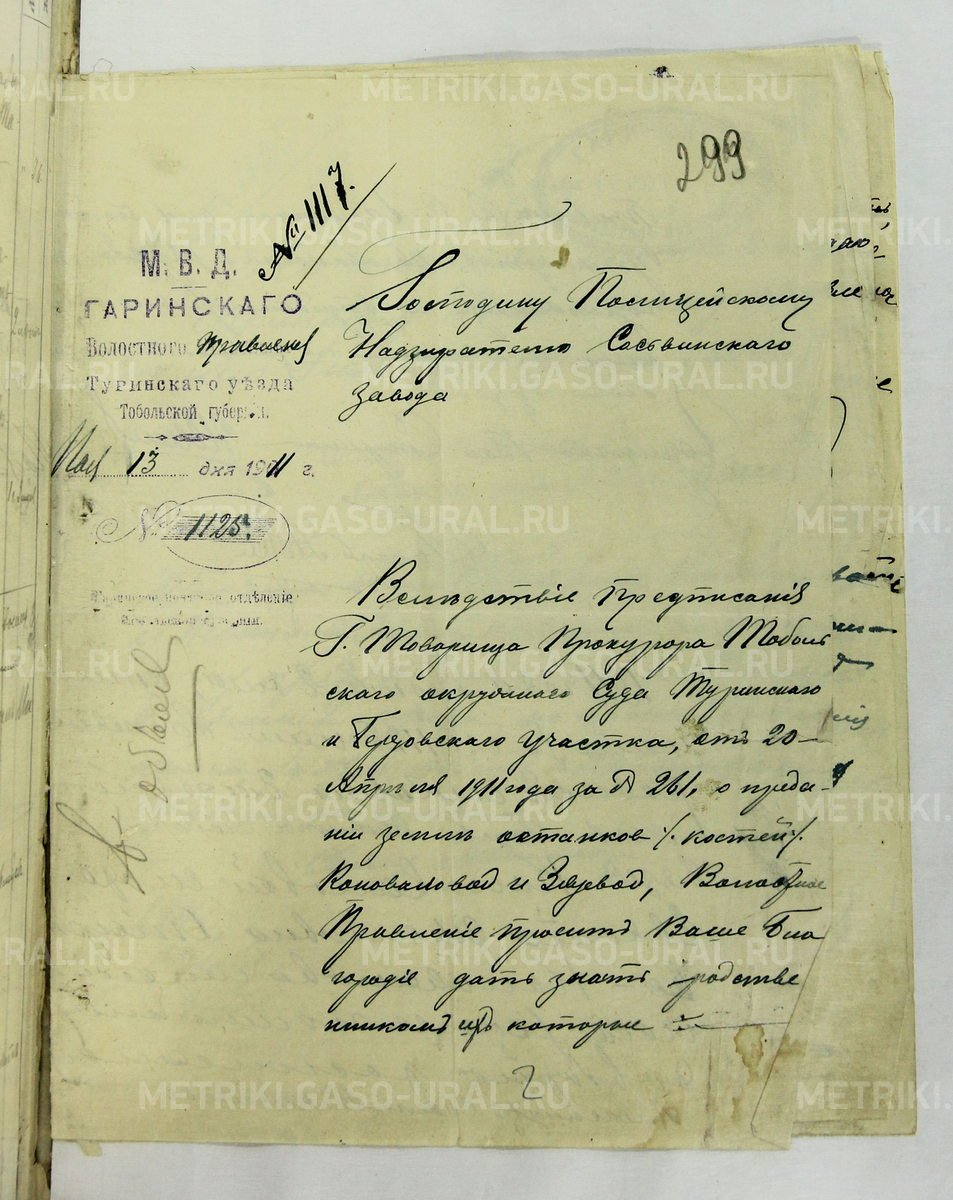 299
№ 1117.
М. В. Д.
ГАРИНСКАГО
Волостного Правленія
Туринскаго уѣзда
Тобольской губерніи.
Мая 13 дня 1911 г.
№ 1125.
почтовое отдѣленіе
Господину Полицейскому
Надзирателю Сосьвинскаго
завода
Вслѣдствіе предписанія
Г. Товарища Прокурора Тоболь
скаго окружнаго Суда Туринскаго
и участка, отъ 20
Апрѣля 1911 года за № 261, о преда-
ніи землѣ останковъ /. костей ./
Коноваловой и Звѣревой, Волостное
Правленіе проситъ Ваше Бла
городіе дать знать родстве
нникамъ ихъ которые
2
METRIKI.GASO-URAL.RU